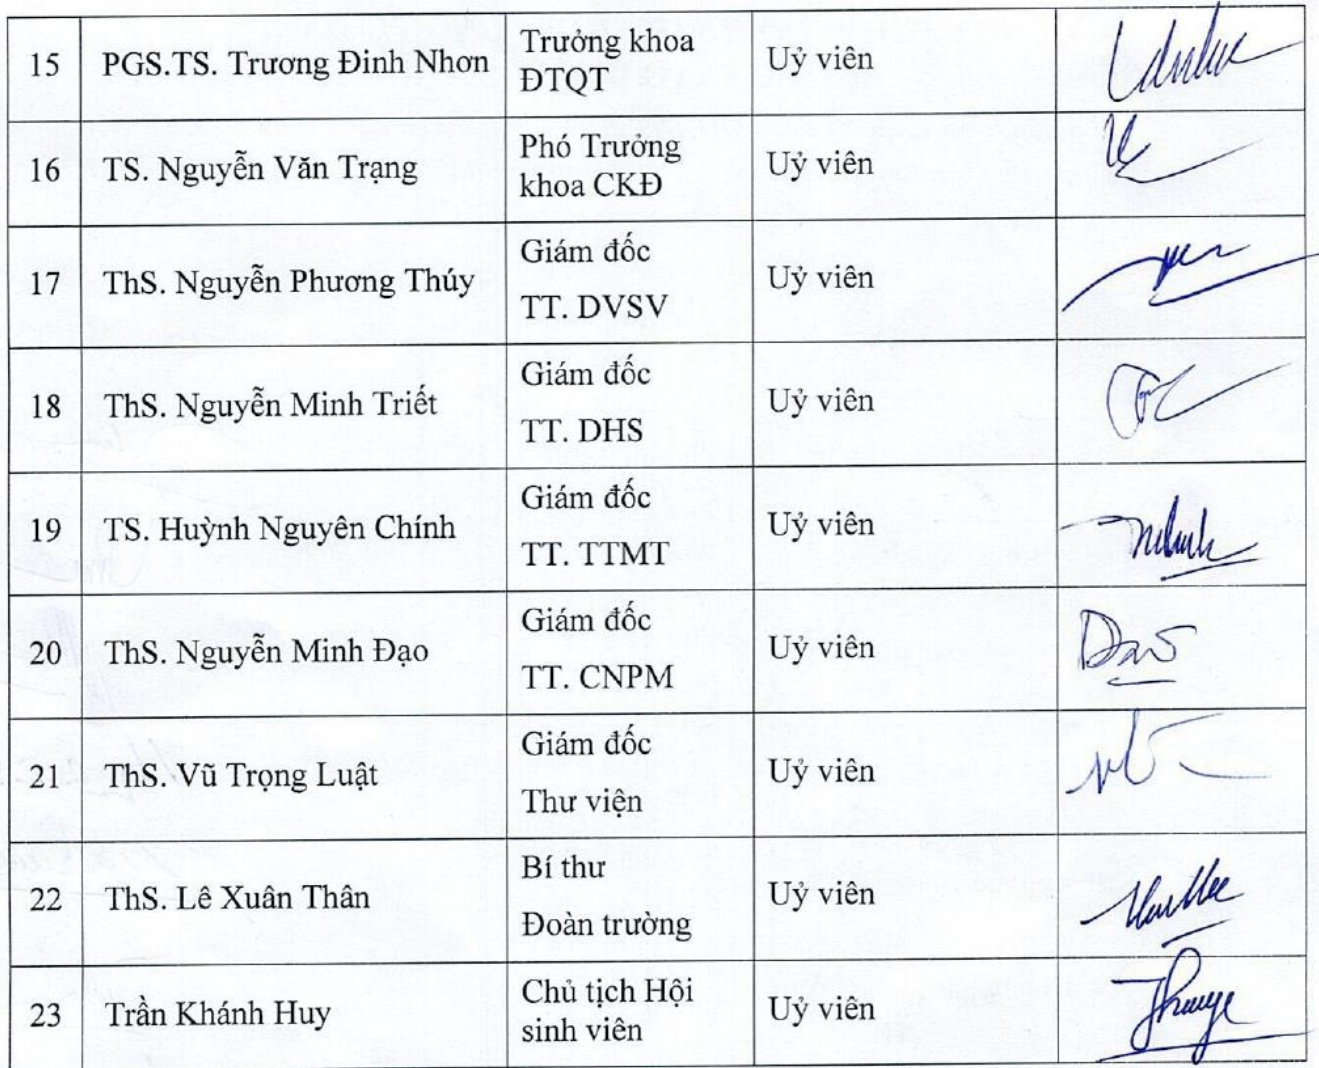 15 PGS.TS. Trương Đinh Nhơn Trưởng khoa ĐTQT Uỷ viên
16 TS. Nguyễn Văn Trạng Phó Trưởng khoa CKĐ Uỷ viên
17 ThS. Nguyễn Phương Thúy Giám đốc TT. DVSV Uỷ viên
18 ThS. Nguyễn Minh Triết Giám đốc TT. DHS Uỷ viên
19 TS. Huỳnh Nguyên Chính Giám đốc TT. TTMT Uỷ viên
20 ThS. Nguyễn Minh Đạo Giám đốc TT. CNPM Uỷ viên Đạo
21 ThS. Vũ Trọng Luật Giám đốc Thư viện Uỷ viên
22 ThS. Lê Xuân Thân Bí thư Đoàn trường Uỷ viên
23 Trần Khánh Huy Chủ tịch Hội sinh viên Uỷ viên